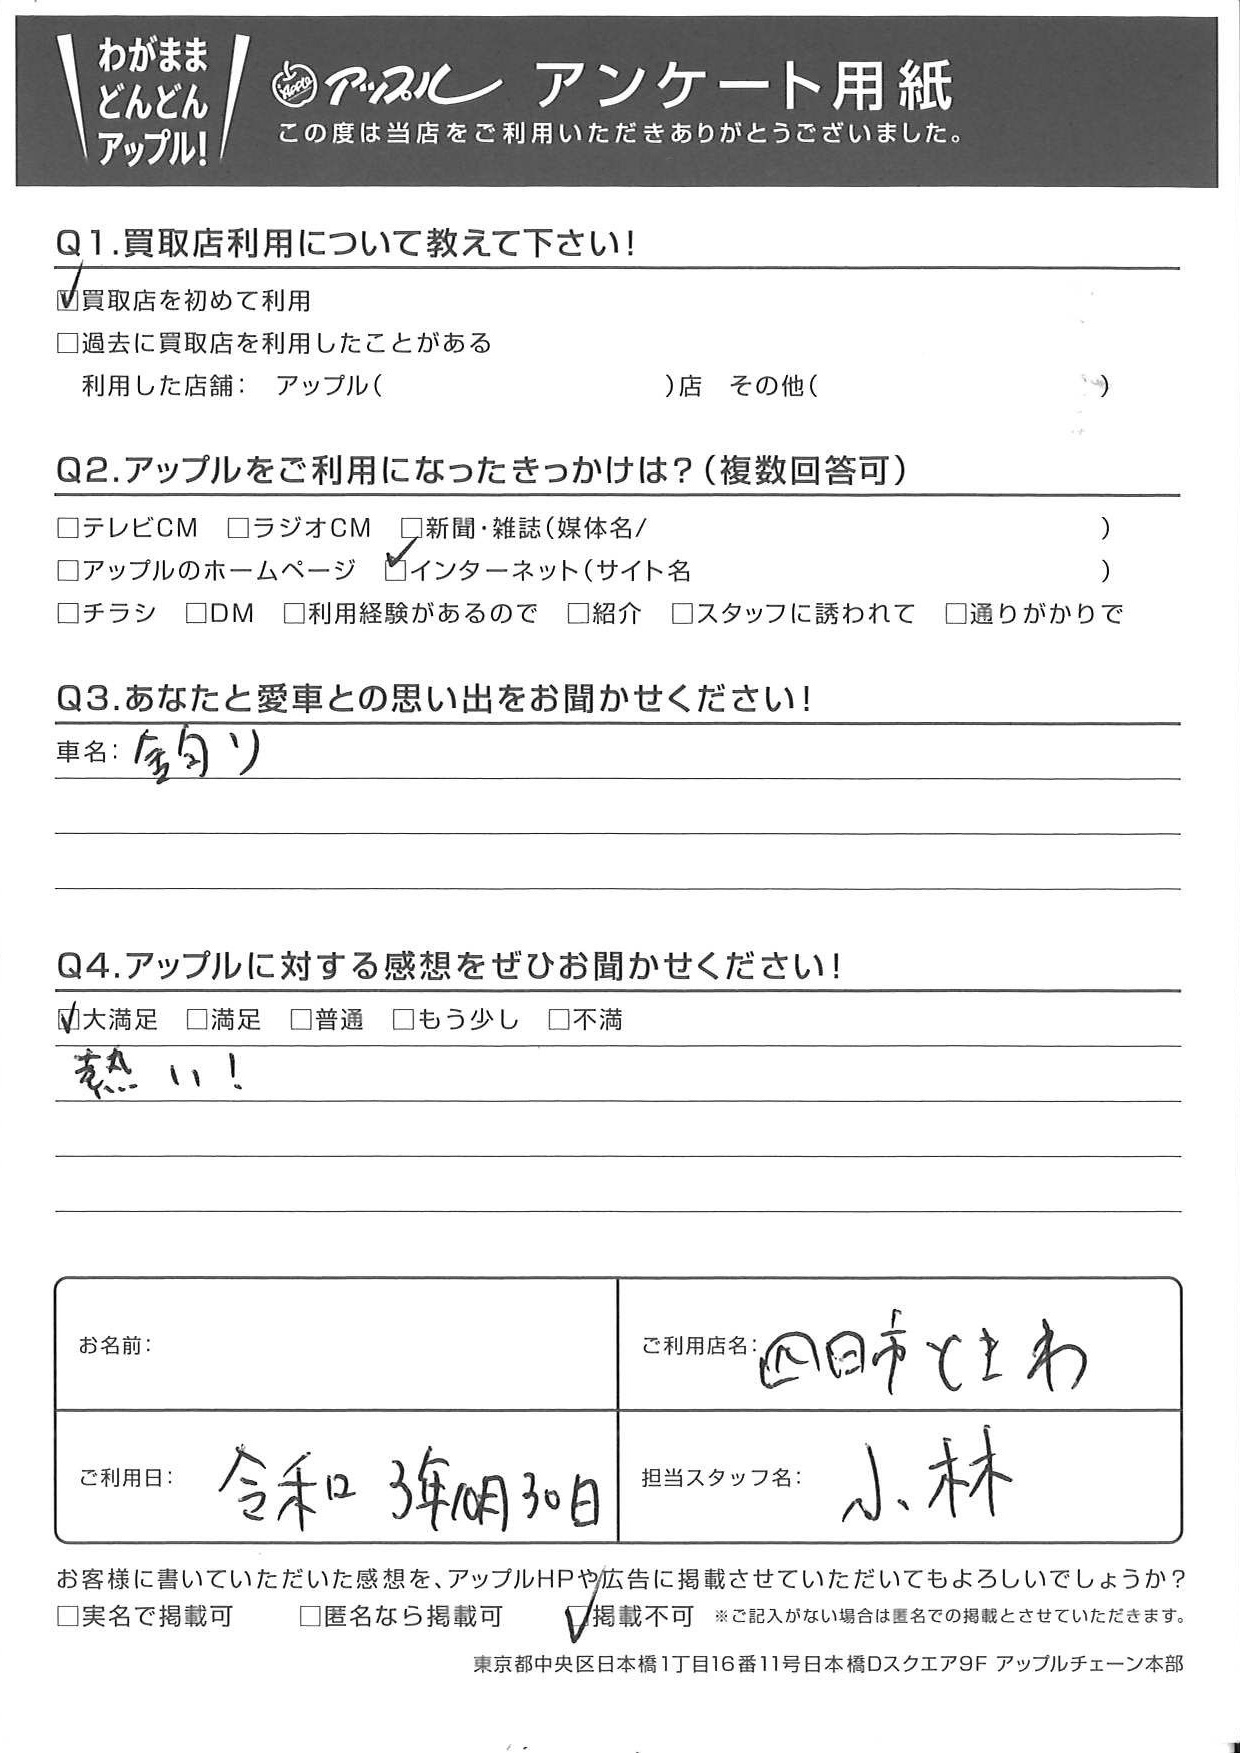 わがまま
どんどん
アップル!
Apple アップル アンケート用紙
この度は当店をご利用いただきありがとうございました。
Q1.買取店利用について教えて下さい!
☑買取店を初めて利用
□過去に買取店を利用したことがある
利用した店舗: アップル( )店 その他( )
Q2.アップルをご利用になったきっかけは?(複数回答可)
□テレビCM □ラジオCM □新聞・雑誌(媒体名/ )
□アップルのホームページ ☑インターネット(サイト名 )
□チラシ □DM □利用経験があるので □紹介 □スタッフに誘われて □通りがかりで
Q3.あなたと愛車との思い出をお聞かせください!
車名: 釣り
Q4.アップルに対する感想をぜひお聞かせください!
☑大満足 □満足 □普通 □もう少し □不満
熱い!
お名前:
ご利用店名: 四日市ときわ
ご利用日: 令和3年10月30日
担当スタッフ名: 小林
お客様に書いていただいた感想を、アップルHPや広告に掲載させていただいてもよろしいでしょうか?
□実名で掲載可 □匿名なら掲載可 ☑掲載不可 ※ご記入がない場合は匿名での掲載とさせていただきます。
東京都中央区日本橋1丁目16番11号日本橋Dスクエア9F アップルチェーン本部